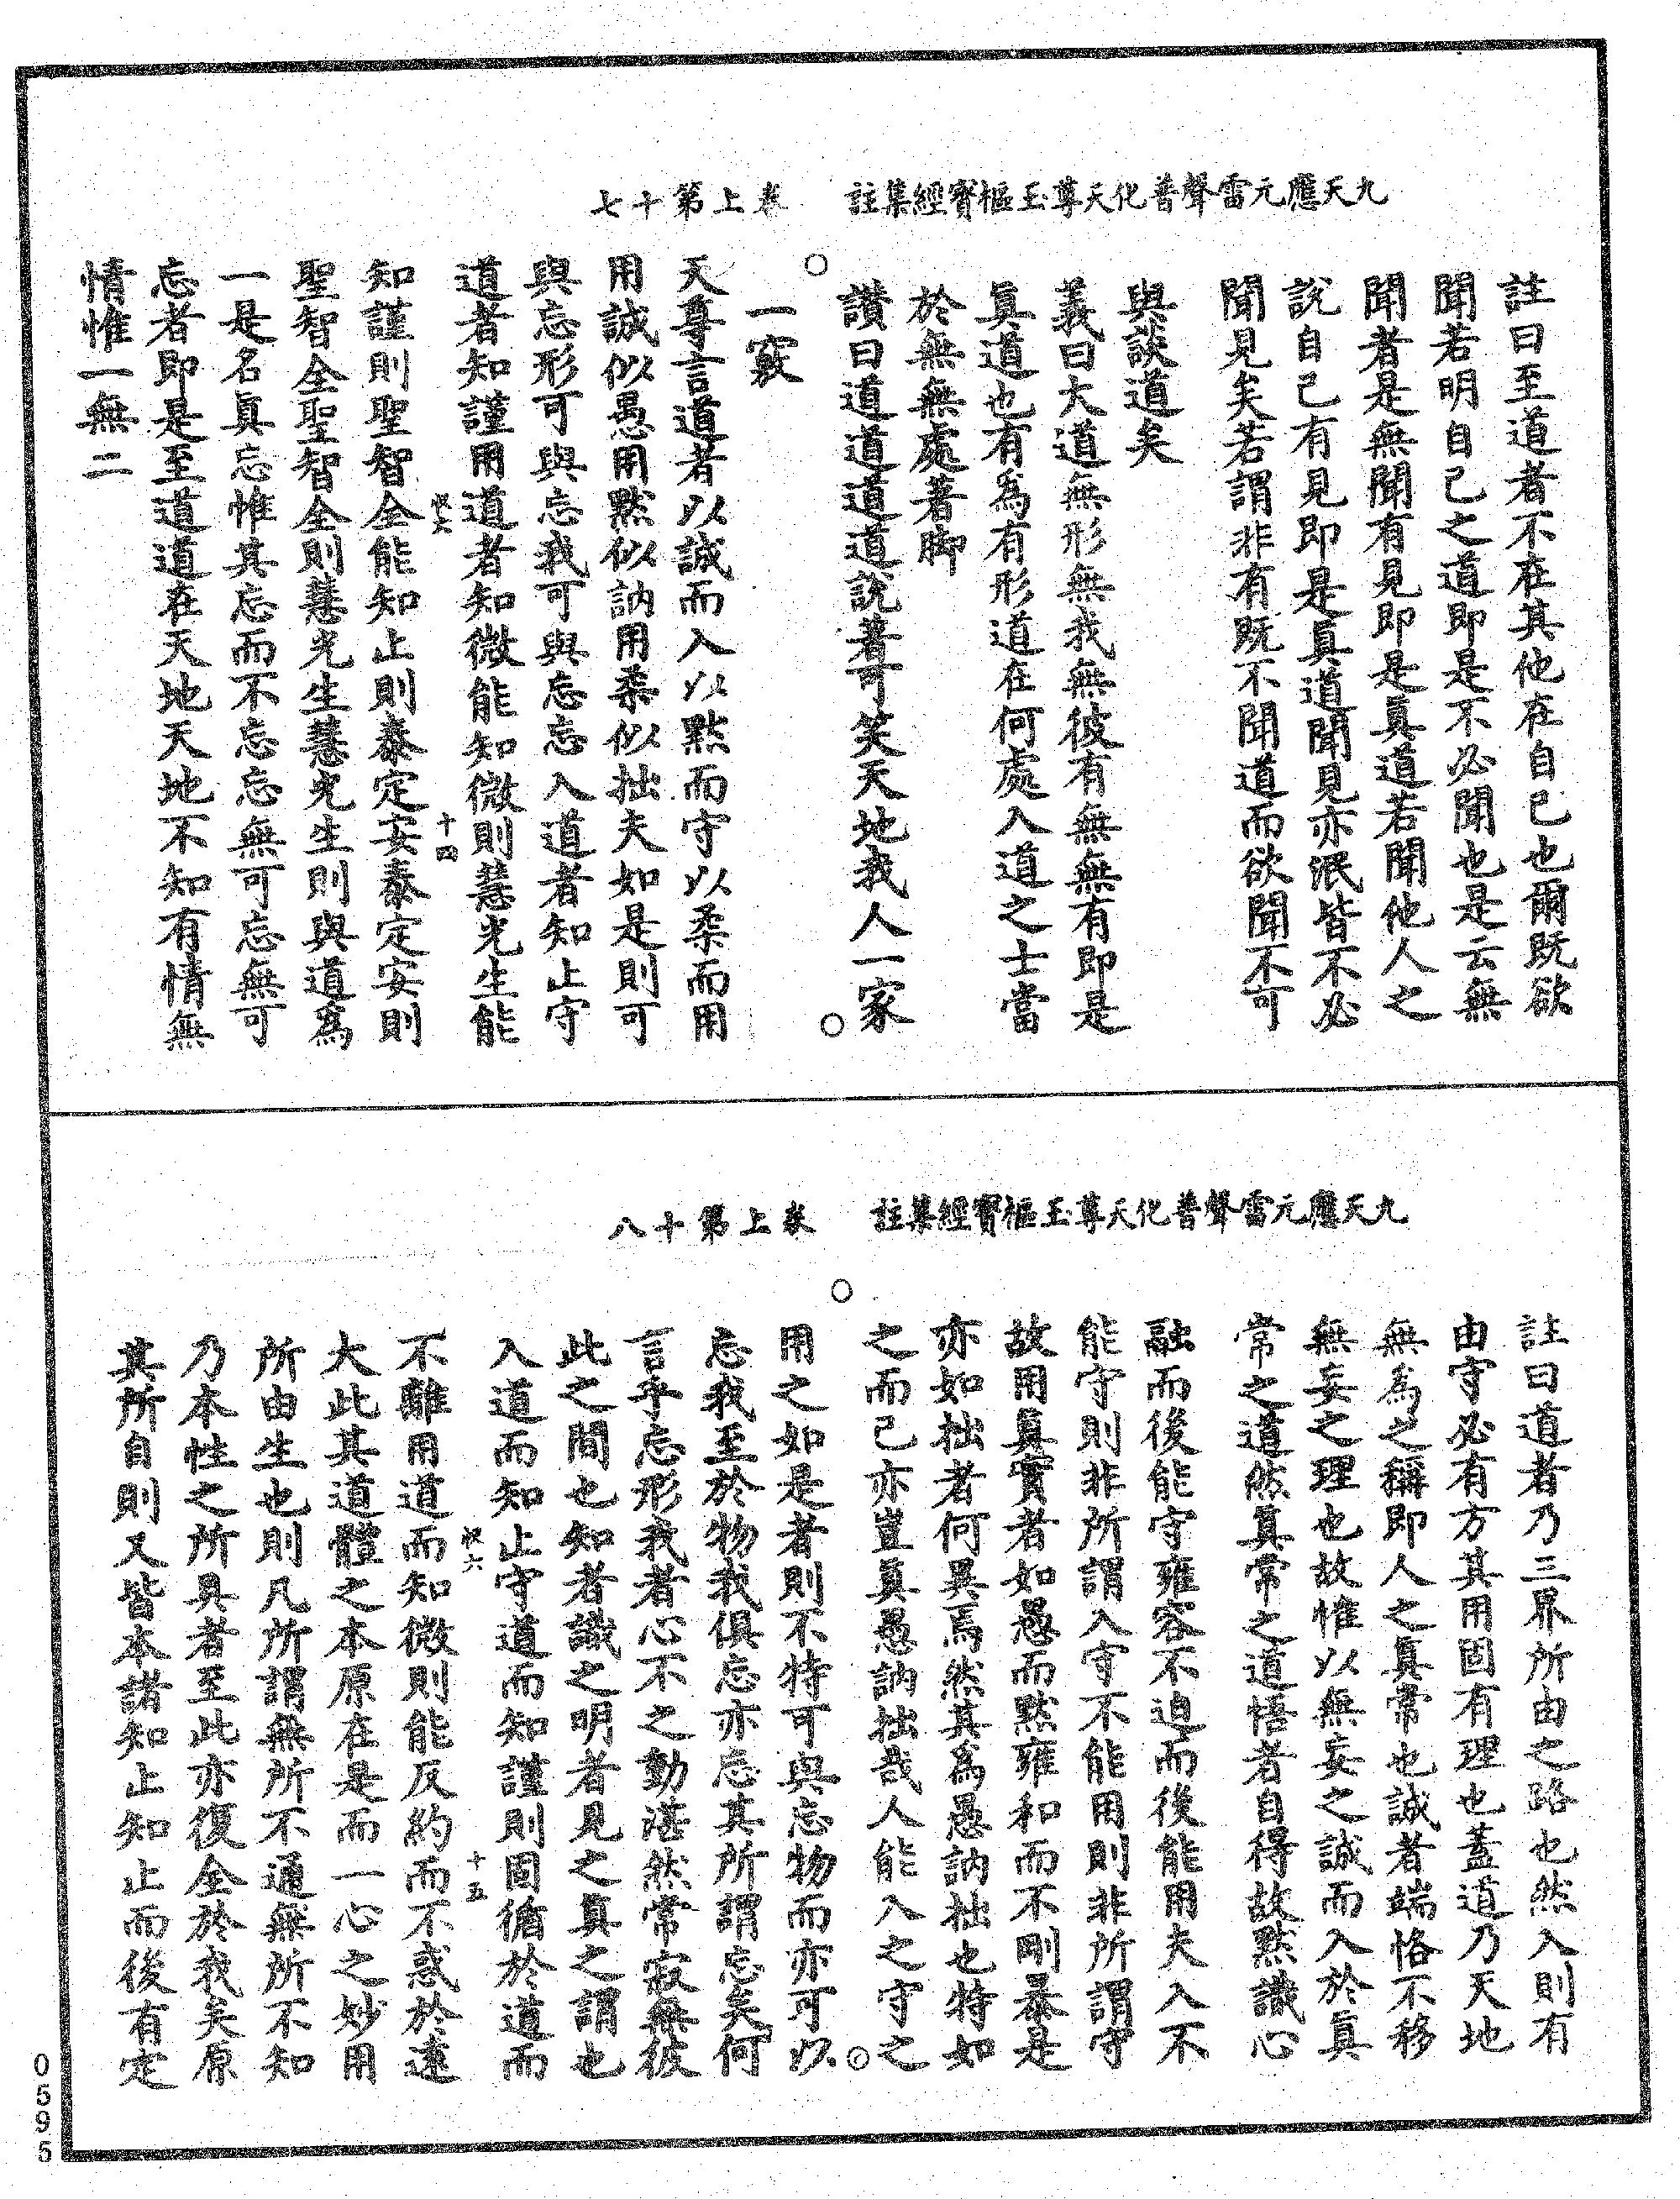 九天應元雷聲普化天尊玉樞寶經集註　卷上第十七
註曰至道者不在其他在自己也爾既欲
聞若明自己之道即是不必聞也是云無
聞者是無聞有見即是真道若聞他人之
說自己有見即是真道聞見亦泯皆不必
聞見矣若謂非有既不聞道而欲聞不可
與談道矣
義曰大道無形無我無彼有無無有即是
真道也有為有形道在何處入道之士當
於無無處著脚
讚曰道道道道說著可笑天地我人一家
一竅
天尊言道者以誠而入以默而守以柔而用
用誠似愚用默似訥用柔似拙夫如是則可
與忘形可與忘我可與忘忘入道者知止守
道者知謹用道者知微能知微則慧光生能
狀六　十四
知謹則聖智全能知止則泰定安泰定安則
聖智全聖智全則慧光生慧光生則與道為
一是名真忘惟其忘而不忘忘無可忘無可
忘者即是至道道在天地天地不知有情無
情惟一無二
九天應元雷聲普化天尊玉樞寶經集註　卷上第十八
註曰道者乃三界所由之路也然入則有
由守必有方其用固有理也蓋道乃天地
無為之稱即人之真常也誠者端恪不移
無妄之理也故惟以無妄之誠而入於真
常之道然真常之道悟者自得故默識心
融而後能守雍容不迫而後能用夫入不
能守則非所謂入守不能用則非所謂守
故用真實者如愚而默雍和而不剛暴是
亦如拙者何異焉然其為愚訥拙也特如
之而已亦豈真愚訥拙哉人能入之守之
用之如是者則不特可與忘物而亦可以
忘我至於物我俱忘亦忘其所謂忘矣何
言乎忘形我者心不之動湛然常寂無彼
此之間也知者識之明者見之真之謂也
入道而知止守道而知謹則固循於道而
狀六　十五
不離用道而知微則能反約而不惑於遠
大此其道體之本原在是而一心之妙用
所由生也則凡所謂無所不通無所不知
乃本性之所具者至此亦復全於我矣原
其所自則又皆本諸知止知止而後有定
0595